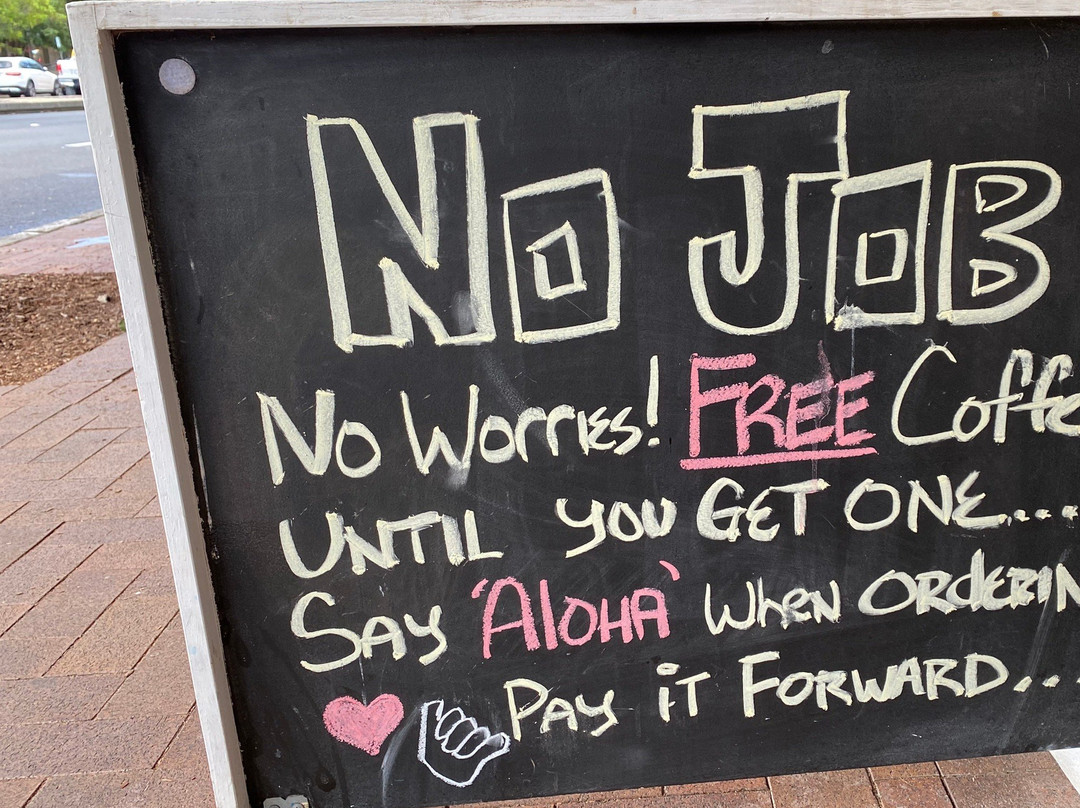 No JoB
No Worries! FREE Coffe
UNTIL you GET ONE....
SAy 'AloHA' WHEN ORDERIN
PAy iT FORWARD...